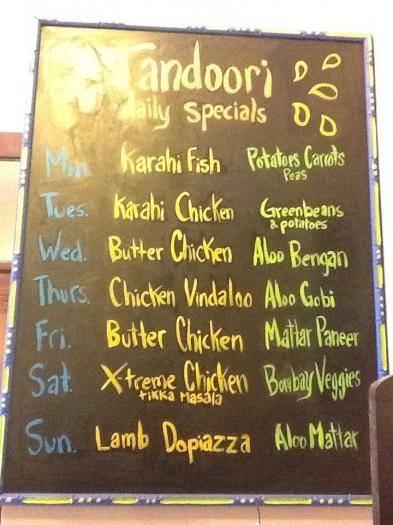 Tandoori
daily specials
Mon. Karahi Fish Potatoes Carrots
Peas
Tues. Karahi Chicken Greenbeans
& potatoes
Wed. Butter Chicken Aloo Bengan
Thurs. Chicken Vindaloo Aloo Gobi
Fri. Butter Chicken Mattar Paneer
Sat. X-treme Chicken Bombay Veggies
tikka Masala
Sun. Lamb Dopiazza Aloo Mattar